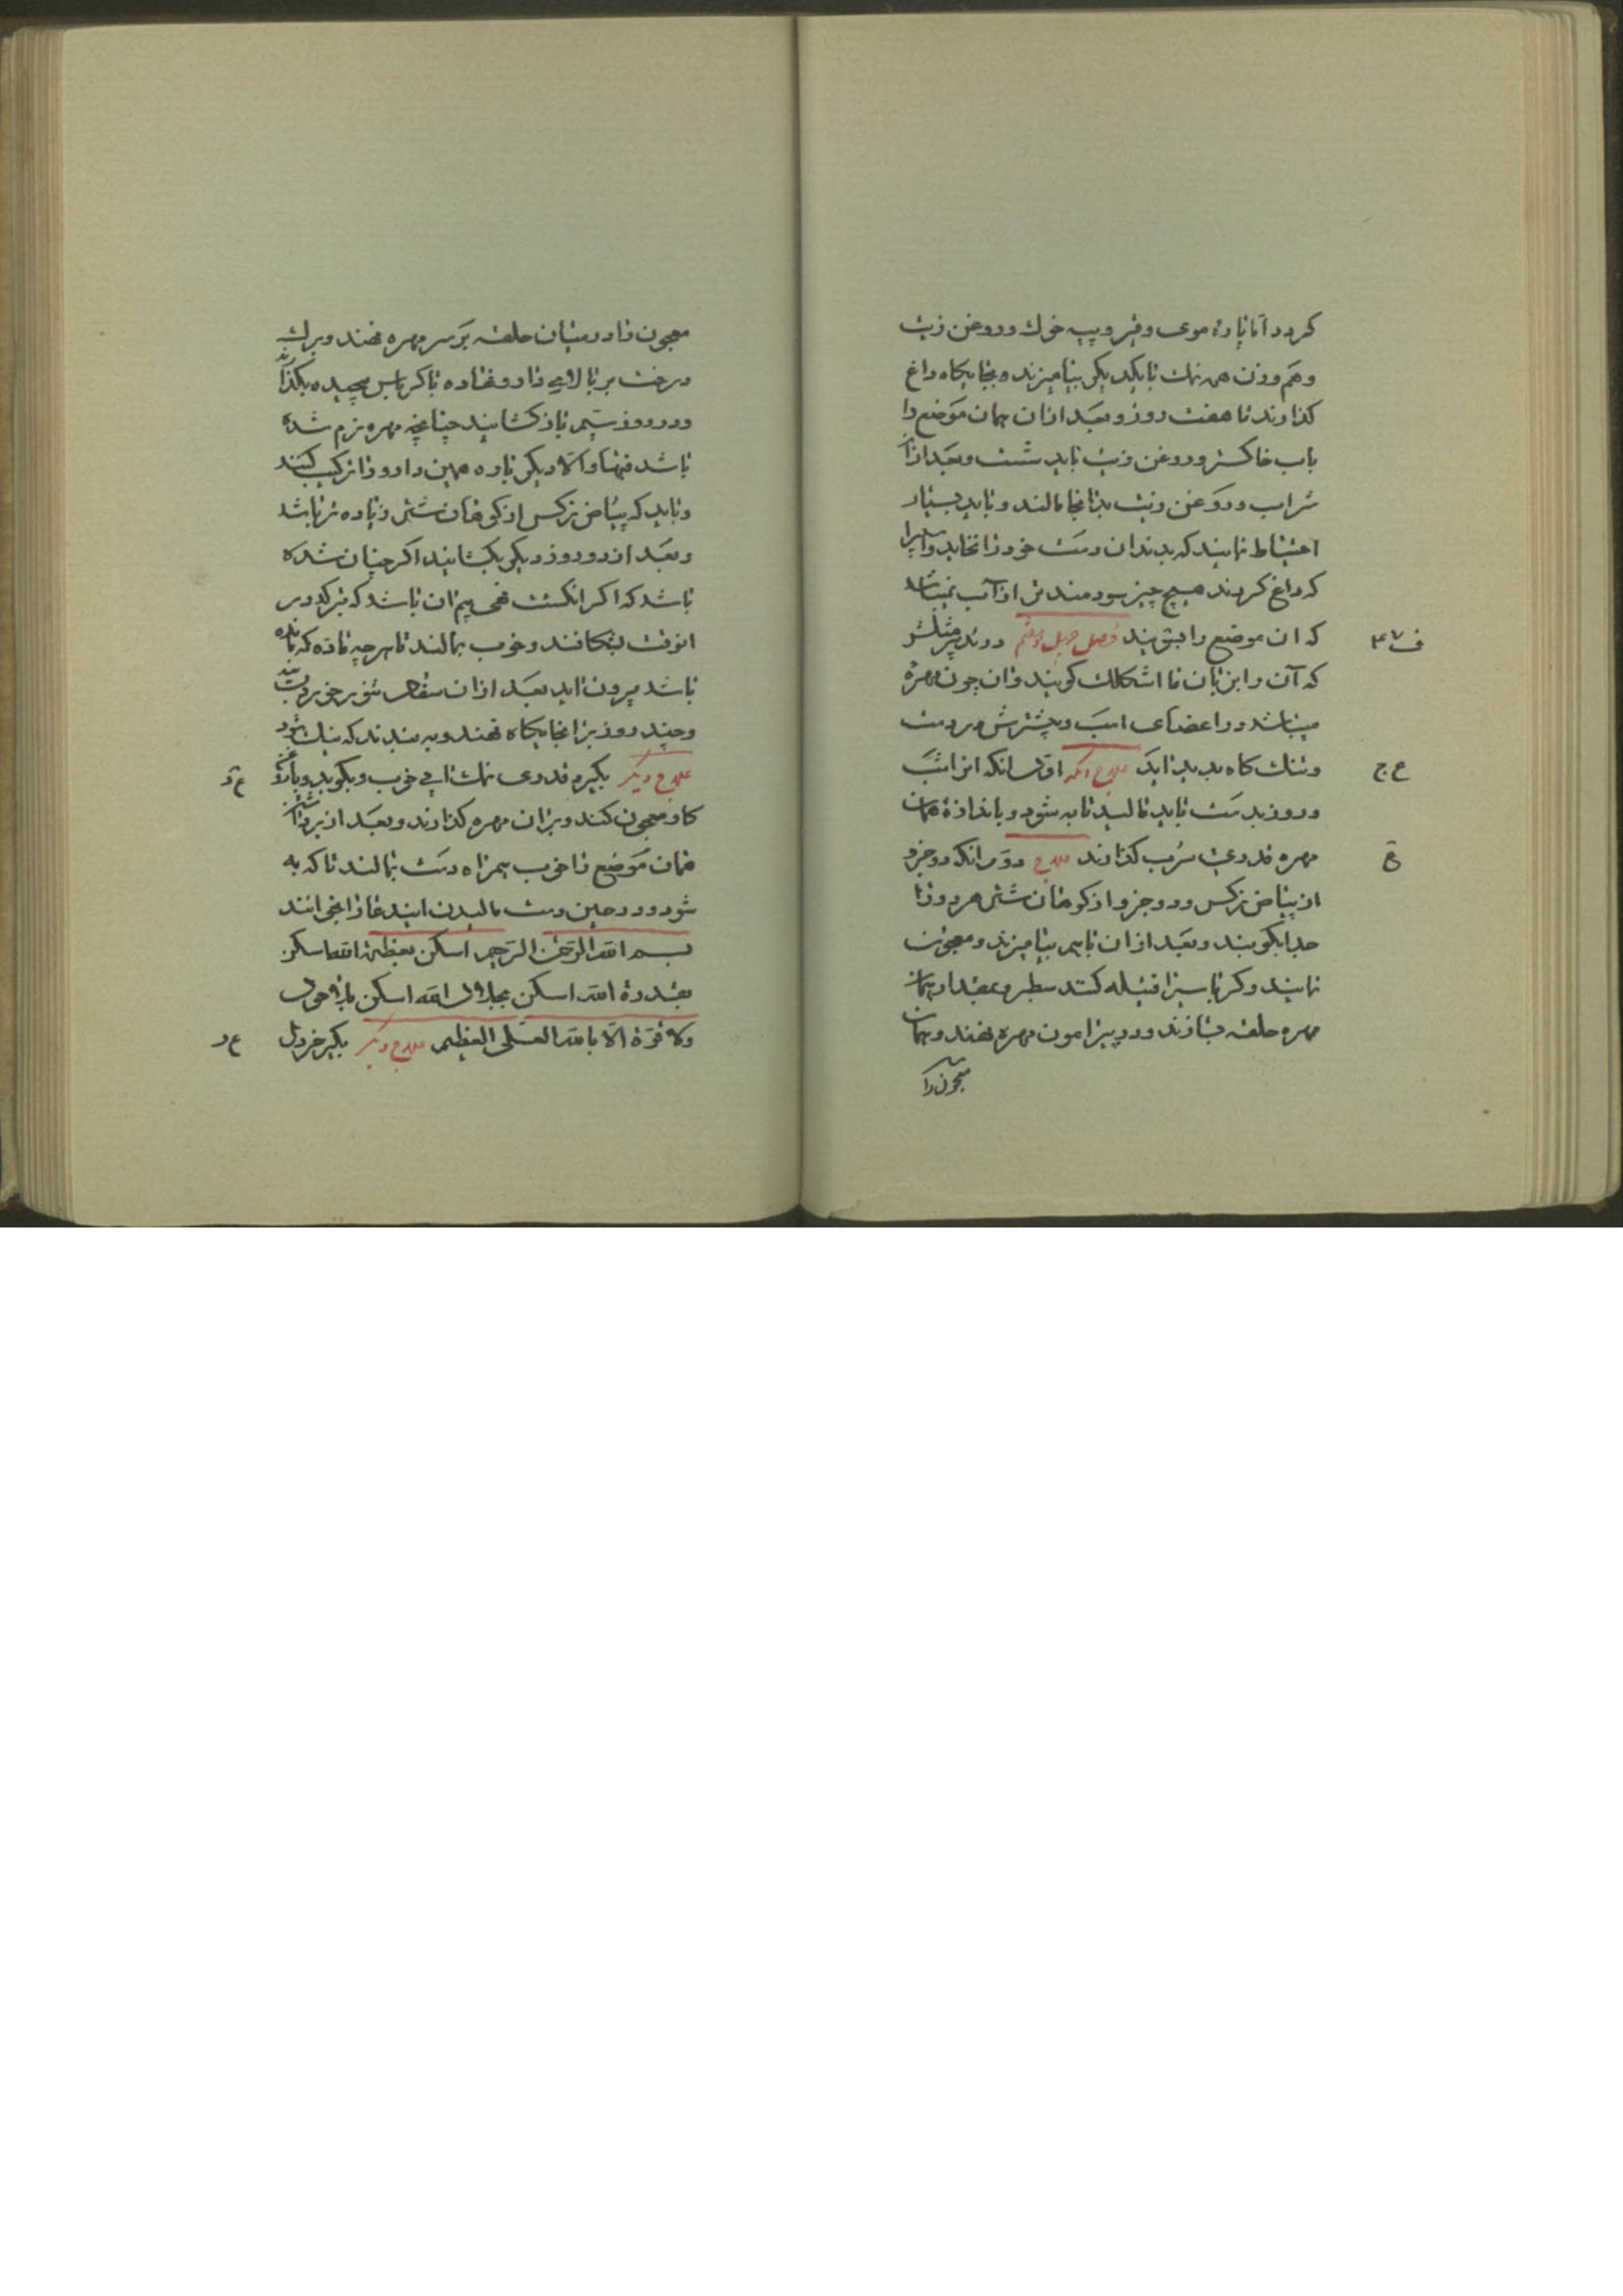 کردد اما پارهٔ موی و قیر و پیه خوك و روغن زیت
و هم وزن همه نمك با یکدیکر بیامیزند و بجایکاه داغ
کذارند تا هفت روز و بعد ازان همان موضع را
باب خاکستر و روغن زیت باید شست و بعد ازان
شراب و روغن زیت بدانجا مالند و باید بسیار
احتیاط نمایند که بدندان دست خود را نخاید و اسپرا
که داغ کردند هیچ چیز سودمندتر از آب نمیباشد
که ان موضع را بشویند فصل چهل و هفتم در
ف ۴۷
که آن را بزبان ما اشکلك کویند و ان چون مهره
میباشد در اعضای اسب و بیشترش در دست
و تنك کاه پدید اید علاج انکه اول انکه هر شب
ع ج
و روز بدست باید مالید تا به شود و باندازهٔ همان
مهره قدری سرب کذارند علاج دوم انکه دو جزو
ع
از پیاض نرکس و دو جزو از کوهان شتر هر دو را
جدا بکوبند و بعد ازان باهم بیامیزند و معجون
نمایند و کرباسیرا فتیله کنند سطبر و بمقدار همان
مهره حلقه سازند و در پیرامون مهره نهند و همان
معجون را
معجون را در میان حلقه بر سر مهره نهند و برك
درخت بر بالای دارو نهاده با کرباس پیچیده بکذارند
و در روز سیم باز کشایند چنانچه مهره نرم شده
باشد فبها و الا دیکر باره همین دارو را ترکیب کنند
و باید که پیاض نرکس از کوهان شتر زیاده تر باشد
و بعد از دو روز دیکر بکشایند اکر چنان شده
باشد که اکر انکشت نهی بیم ان باشد که بترکد در
انوقت بشکافند و خوب بمالند تا هر چه ماده که مانده
باشد بیرون اید بعد ازان
و چند روز برانجایکاه نهند و به بندند که نیك شود
علاج دیکر بکیرد قدری نمك ابی خوب و بکوبد و با روغن
ع د
کاو معجون کنند و بران مهره کذارند و بعد از برداشتن
همان موضع را خوب همراه دست بمالند تا که به
شود و در حین دست مالیدن ایندعا را بخوانند
بسم الله الرحمن الرحیم اسکن بعظمة الله اسکن
بقدرة الله اسکن بجلال الله اسکن بلاحول
ولا قوة الا بالله العلی العظیم علاج دیکر بکیر خردل
ع د